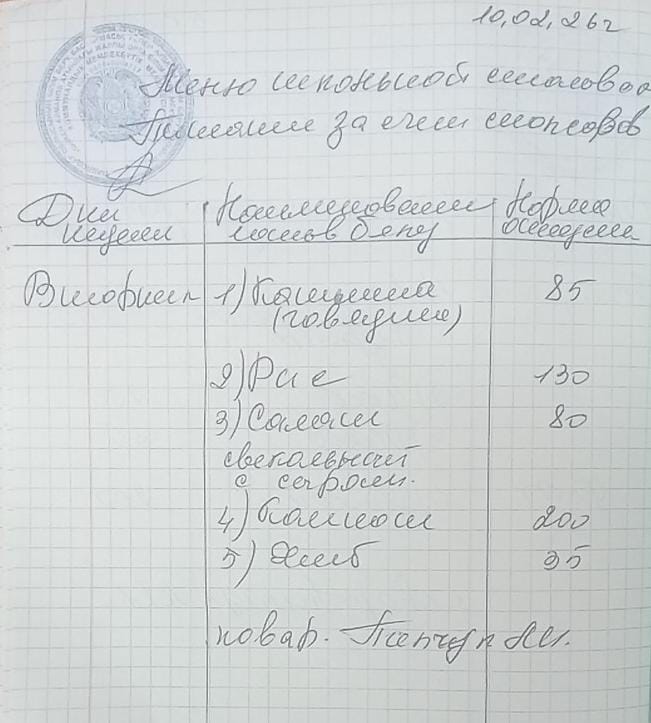 10,02,26г
Меню школьной столовой
Питание за счет спонсоров
Дни недели
Наименование блюд
Норма
Вторник
1) Гаширма 85
(говядина)
2) Рис 130
3) Салат 80
свекольный
с сыром.
4) Компот 200
5) Хлеб 35
повар.